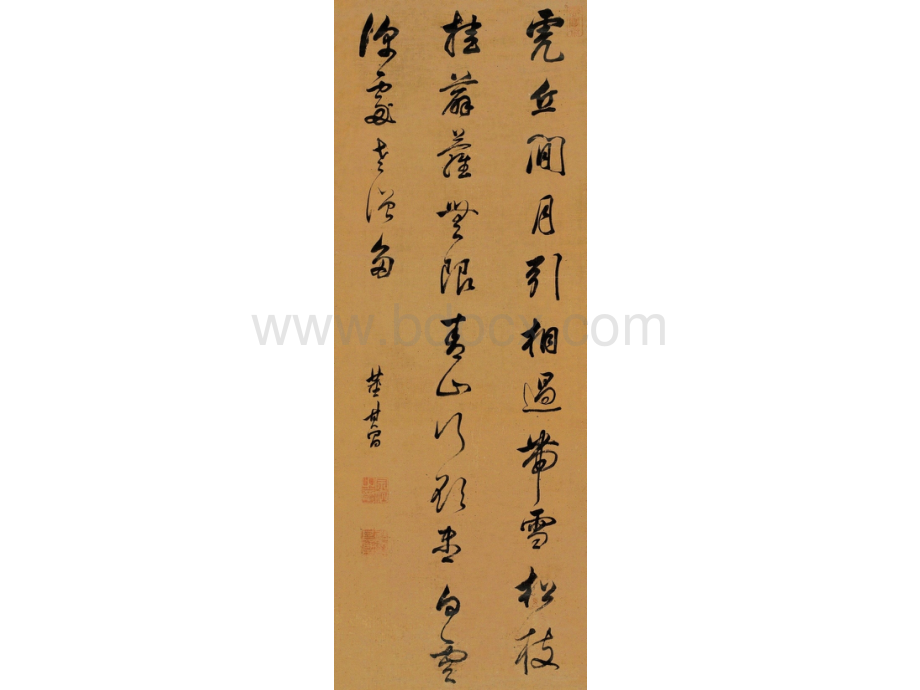 虎丘閒月引相過帶雪松枝
挂薜蘿無限青山行欲盡白雲
深處老僧多
董其昌
www.bdocx.com